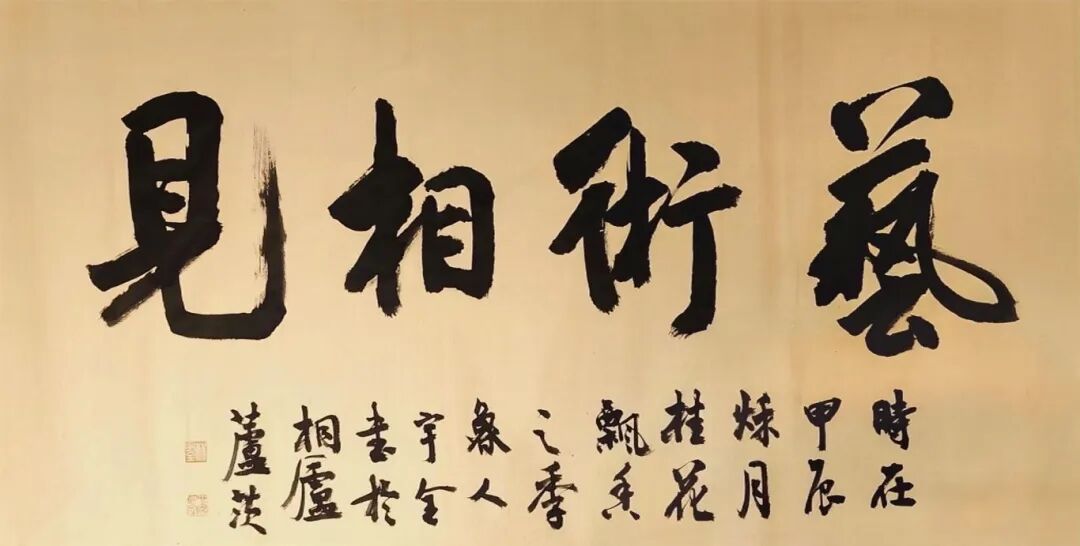 藝術相見
時在
甲辰
秌月
桂花
飄香
之季
人
宇全
書於
桐廬
蘆茨